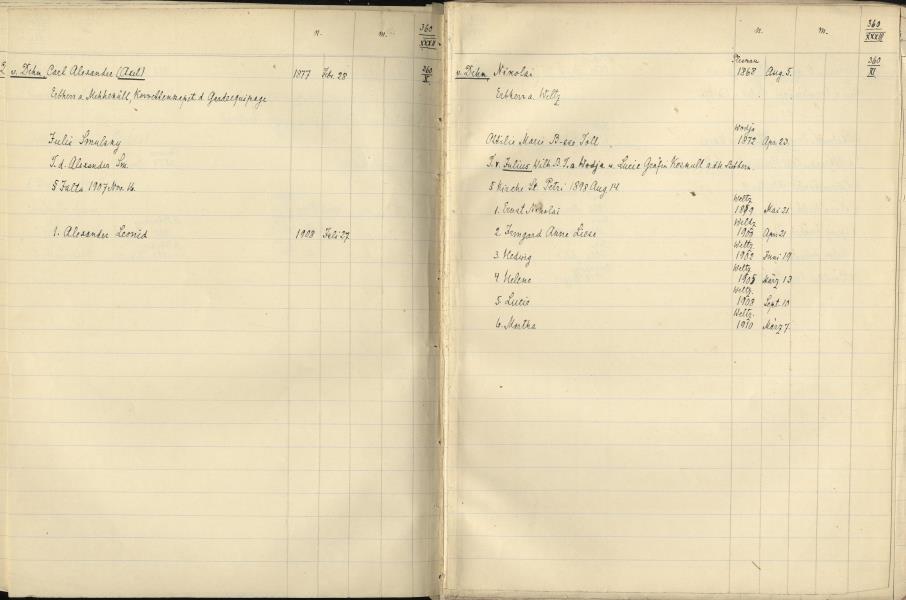 n. m. 360
XXXII
v. Dehn, Carl Alexander (Axel) 1877 Febr. 28 360
X
Erbherr a. Mehheküll, Kornettenkapit d. Gardeequipage
Julie Smulsky
T. d. Alexander Sm.
§ Jalta 1907 Nov. 16.
1. Alexander Leonid 1908 Juli 27.
n. m. 360
XXXIII
Pernau 360
v. Dehn, Nikolai 1868 Aug. 5. XI
Erbherr a. Weltz
Wodja
Ottilie Marie B-sse Toll 1872 Apr. 23.
T. v. Julius Wilh. B. T. a. Wodja u. Lucie Gräfin
§ Kirche St. Petri 1898 Aug 14
Weltz
1. Ernst Nikolai Mai 21.
Weltz
2. Irmgard Anna Liese Apr. 21
Weltz.
3. Hedwig 1902 Juni 19
Weltz
4. Helene 1905 März 13
Weltz.
5. Lucie 1908 Sept. 10
Weltz.
6. Martha 1910 März 7.